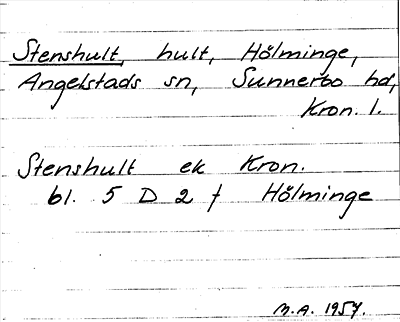 Stenshult, hult, Hölminge,
Angelstads sn, Sunnerbo hd,
Kron. l.
Stenshult ek Kron.
bl. 5 D 2 f Hölminge
M.A. 1957.